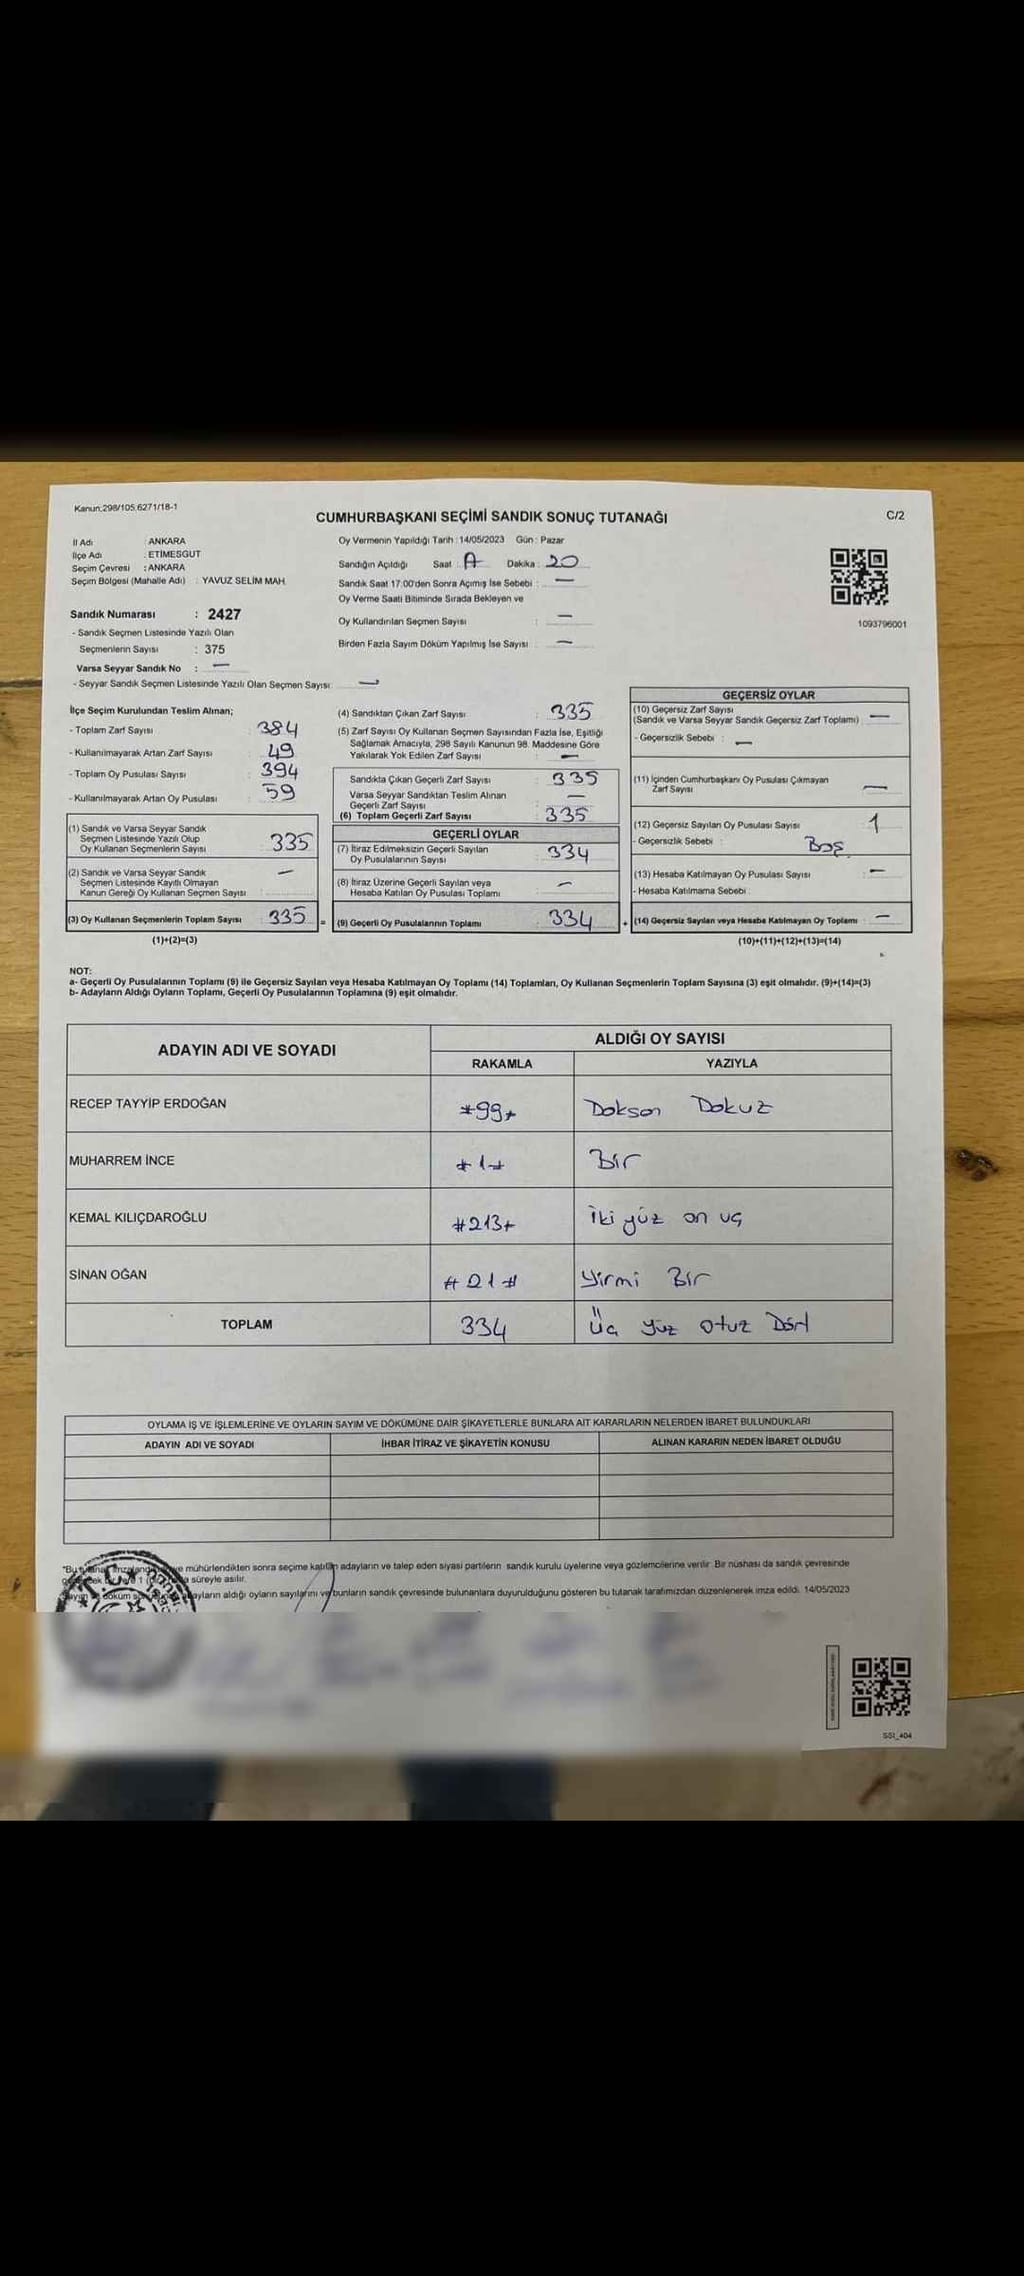 Kanun:298/105;6271/18-1
CUMHURBAŞKANI SEÇİMİ SANDIK SONUÇ TUTANAĞI
C/2
İl Adı : ANKARA
İlçe Adı : ETİMESGUT
Seçim Çevresi : ANKARA
Seçim Bölgesi (Mahalle Adı) : YAVUZ SELİM MAH.
Sandık Numarası : 2427
- Sandık Seçmen Listesinde Yazılı Olan
Seçmenlerin Sayısı : 375
Varsa Seyyar Sandık No : —
- Seyyar Sandık Seçmen Listesinde Yazılı Olan Seçmen Sayısı: —
Oy Vermenin Yapıldığı Tarih : 14/05/2023 Gün : Pazar
Sandığın Açıldığı Saat : Dakika : 20
Sandık Saat 17:00'den Sonra Açımış İse Sebebi : —
Oy Verme Saati Bitiminde Sırada Bekleyen ve
Oy Kullandırılan Seçmen Sayısı : —
Birden Fazla Sayım Döküm Yapılmış İse Sayısı : —
1093796001
İlçe Seçim Kurulundan Teslim Alınan;
- Toplam Zarf Sayısı : 384
- Kullanılmayarak Artan Zarf Sayısı : 49
- Toplam Oy Pusulası Sayısı : 394
- Kullanılmayarak Artan Oy Pusulası : 59
(1) Sandık ve Varsa Seyyar Sandık
Seçmen Listesinde Yazılı Olup
Oy Kullanan Seçmenlerin Sayısı : 335
(2) Sandık ve Varsa Seyyar Sandık
Seçmen Listesinde Kayıtlı Olmayan
Kanun Gereği Oy Kullanan Seçmen Sayısı : —
(3) Oy Kullanan Seçmenlerin Toplam Sayısı : 335 =
(1)+(2)=(3)
(4) Sandıktan Çıkan Zarf Sayısı : 335
(5) Zarf Sayısı Oy Kullanan Seçmen Sayısından Fazla İse, Eşitliği
Sağlamak Amacıyla, 298 Sayılı Kanunun 98. Maddesine Göre
Yakılarak Yok Edilen Zarf Sayısı : —
Sandıkta Çıkan Geçerli Zarf Sayısı : 335
Varsa Seyyar Sandıktan Teslim Alınan
Geçerli Zarf Sayısı : —
(6) Toplam Geçerli Zarf Sayısı : 335
GEÇERLİ OYLAR
(7) İtiraz Edilmeksizin Geçerli Sayılan
Oy Pusulalarının Sayısı : 334
(8) İtiraz Üzerine Geçerli Sayılan veya
Hesaba Katılan Oy Pusulası Toplamı : —
(9) Geçerli Oy Pusulalarının Toplamı : 334 +
GEÇERSİZ OYLAR
(10) Geçersiz Zarf Sayısı
(Sandık ve Varsa Seyyar Sandık Geçersiz Zarf Toplamı) : —
- Geçersizlik Sebebi : —
(11) İçinden Cumhurbaşkanı Oy Pusulası Çıkmayan
Zarf Sayısı : —
(12) Geçersiz Sayılan Oy Pusulası Sayısı : 1
- Geçersizlik Sebebi : Boş
(13) Hesaba Katılmayan Oy Pusulası Sayısı : —
- Hesaba Katılmama Sebebi :
(14) Geçersiz Sayılan veya Hesaba Katılmayan Oy Toplamı : —
(10)+(11)+(12)+(13)=(14)
NOT:
a- Geçerli Oy Pusulalarının Toplamı (9) ile Geçersiz Sayılan veya Hesaba Katılmayan Oy Toplamı (14) Toplamları, Oy Kullanan Seçmenlerin Toplam Sayısına (3) eşit olmalıdır. (9)+(14)=(3)
b- Adayların Aldığı Oyların Toplamı, Geçerli Oy Pusulalarının Toplamına (9) eşit olmalıdır.
ADAYIN ADI VE SOYADI
ALDIĞI OY SAYISI
RAKAMLA YAZIYLA
RECEP TAYYİP ERDOĞAN *99* Doksan Dokuz
MUHARREM İNCE *1* Bir
KEMAL KILIÇDAROĞLU #213+ İki yüz on üç
SİNAN OĞAN #21# Yirmi Bir
TOPLAM 334 Üç yüz otuz Dört
OYLAMA İŞ VE İŞLEMLERİNE VE OYLARIN SAYIM VE DÖKÜMÜNE DAİR ŞİKAYETLERLE BUNLARA AİT KARARLARIN NELERDEN İBARET BULUNDUKLARI
ADAYIN ADI VE SOYADI İHBAR İTİRAZ VE ŞİKAYETİN KONUSU ALINAN KARARIN NEDEN İBARET OLDUĞU
mühürlendikten sonra seçime katılan adayların ve talep eden siyasi partilerin sandık kurulu üyelerine veya gözlemcilerine verilir. Bir nüshası da sandık çevresinde
süreyle asılır.
adayların aldığı oyların sayılarını ve bunların sandık çevresinde bulunanlara duyurulduğunu gösteren bu tutanak tarafımızdan düzenlenerek imza edildi. 14/05/2023
SSI_404